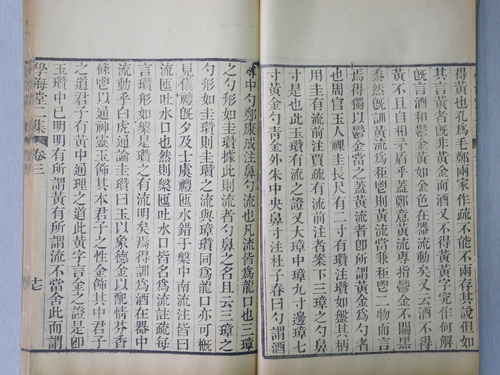 得黃也孔爲毛鄭兩家作疏不能不兩存其說但如
其言黃者旣非黃金而酒又不得黃黃字究作何解
旣言酒和鬱金黃如金色在器流動矣又云酒不得
黃不且自相矛盾乎蓋鄭意黃流專指鬱金不關黑
黍然旣訓黃流爲秬鬯則黃流當兼秬鬯二物而言
焉得以鬱金當之蓋黃流者卽所謂黃金爲勺者
也周官玉人祼圭長尺有二寸有瓚注瓚如盤其柄
用圭有流前注賈疏有流前注者案下三璋之勺鼻
寸是也此瓚有流之證又大璋中璋九寸邊璋七
寸黃金勺青金外朱中央鼻寸注杜子春曰勺謂酒
尊中勺鄭康成注鼻勺流也凡流皆爲龍口也三璋
之勺形如圭瓚據此則流者勺鼻之名且云三璋之
勺形如圭瓚則圭瓚之流與璋瓚同爲龍口亦可槪
見儀禮旣夕及士虞禮匜水錯于槃中南流注皆曰
流匜吐水口也然則槃匜吐水口皆爲流註疏每
言瓚形如槃是瓚之有流明矣焉得訓爲酒在器中
流動乎白虎通論圭瓚曰玉以象德金以配情芬香
條鬯以通神靈玉飾其本君子之性金飾其中君子
之道君子有黃中通理之道此黃字言金之證是卽
玉瓚中已明明有所謂黃有所謂流不當舍此而謂
學海堂二集 卷三